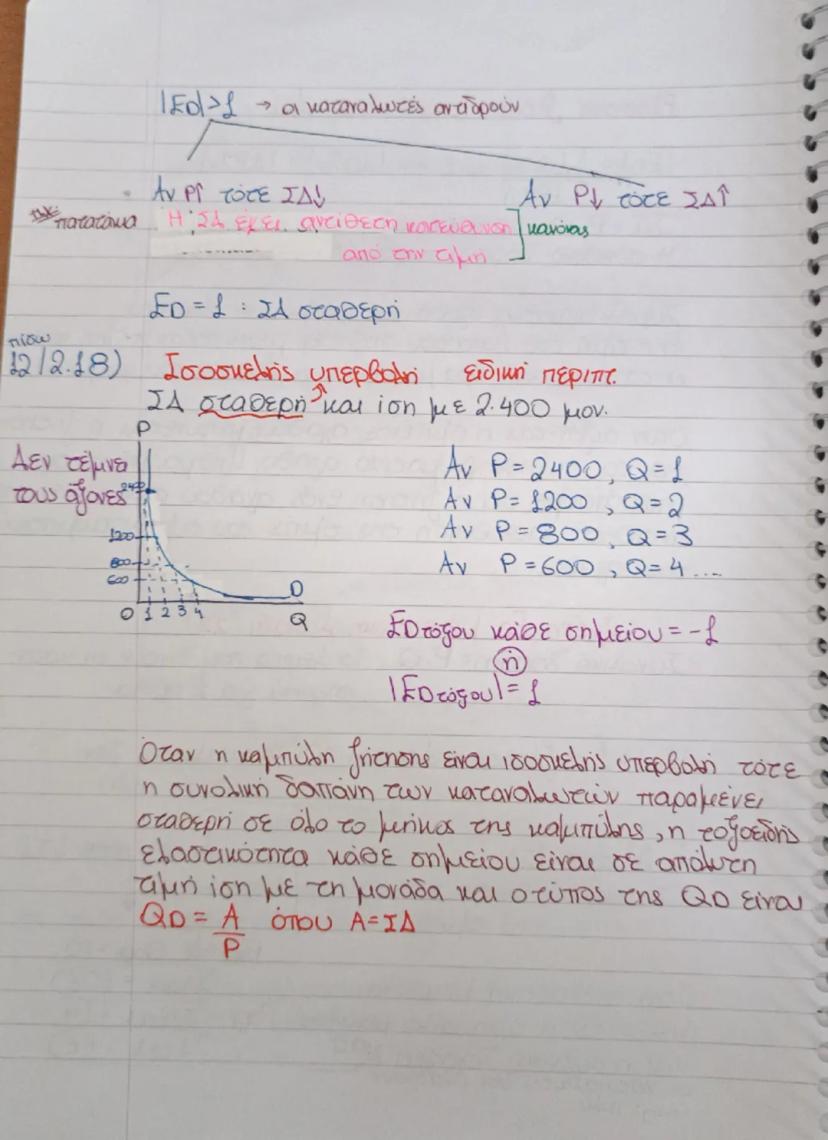 |ED|>1 → οι καταναλωτές αντιδρούν
Αν P↑ τότε ΣΔ↓
Αν P↓ τότε ΣΔ↑
πατατάκια Η ΣΔ έχει αντίθετη κατεύθυνση κανόνας
από την τιμή
ED = 1 : ΣΔ σταθερή
πίσω
12/2.18) Ισοσκελής υπερβολή ειδική περιπτ.
ΣΔ σταθερή και ίση με 2.400 μον.
P
Δεν τέμνει
τους άξονες
1200
800
600
D
0 1 2 3 4 Q
Αν P = 2400, Q = 1
Αν P = 1200, Q = 2
Αν P = 800, Q = 3
Αν P = 600, Q = 4 ....
ED τόξου κάθε σημείου = -1
ή
|ED τόξου| = 1
Όταν η καμπύλη ζήτησης είναι ισοσκελής υπερβολή τότε
η συνολική δαπάνη των καταναλωτών παραμένει
σταθερή σε όλο το μήκος της καμπύλης, η τοξοειδής
ελαστικότητα κάθε σημείου είναι σε απόλυτη
τιμή ίση με τη μονάδα και ο τύπος της QD είναι
QD = A/P όπου A = ΣΔ